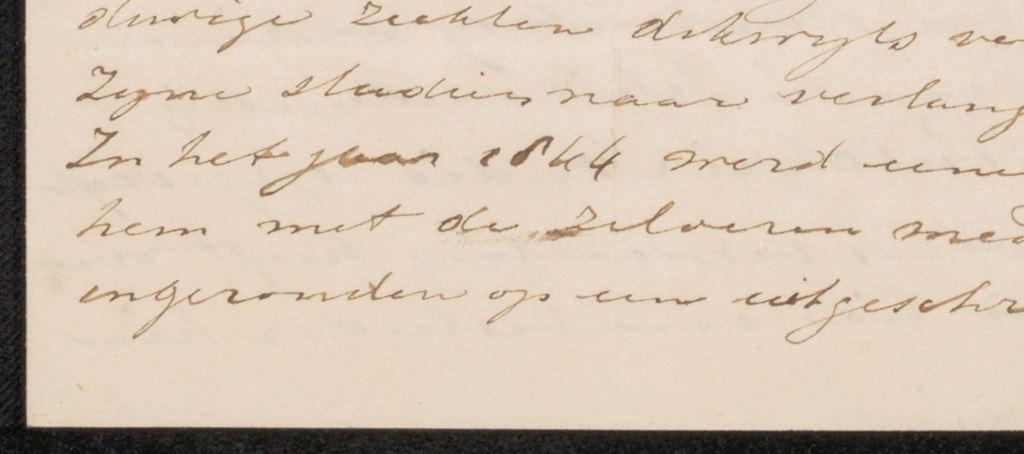 durige ziekten dikwyls ve
Zyne studien naar verlang
In het jaar 1844 werd eene
hem met de zilveren med
ingezonden op een uitgeschr